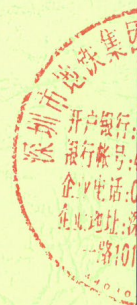 深圳市地铁集团
开户银行:
银行帐号:
企业电话:0
企业地址:深
一路101